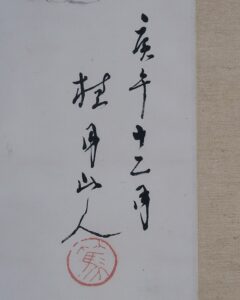 庚午十二月
桂月山人